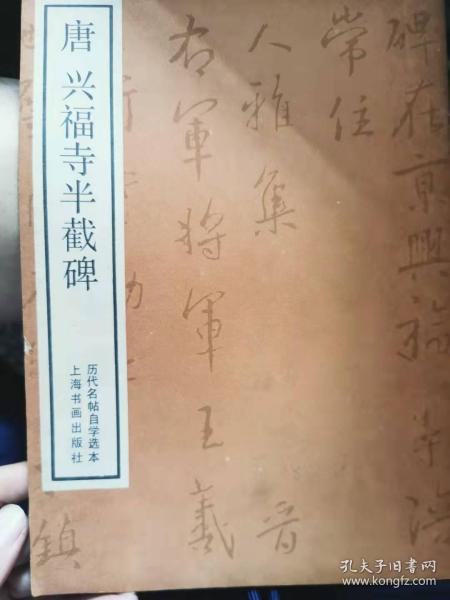 唐 兴福寺半截碑
历代名帖自学选本
上海书画出版社
碑在京興福寺陪
常住
大雅集晉
右軍將軍王羲
行
鎮
孔夫子旧书网
www.kongfz.com